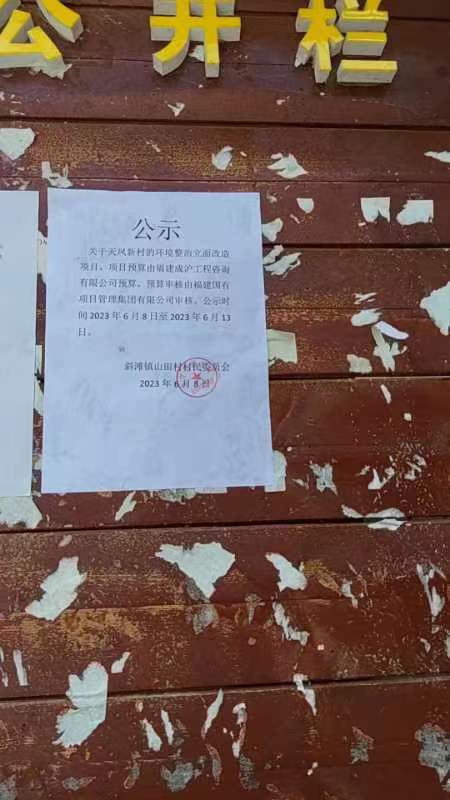 公开栏
公示
关于天凤新村的环境整治立面改造
项目，项目预算由福建成沪工程咨询
有限公司预算，预算审核由福建国有
项目管理集团有限公司审核。公示时
间 2023 年 6 月 8 日至 2023 年 6 月 13
日。
斜滩镇山田村村民委员会
2023 年 6 月 8 日